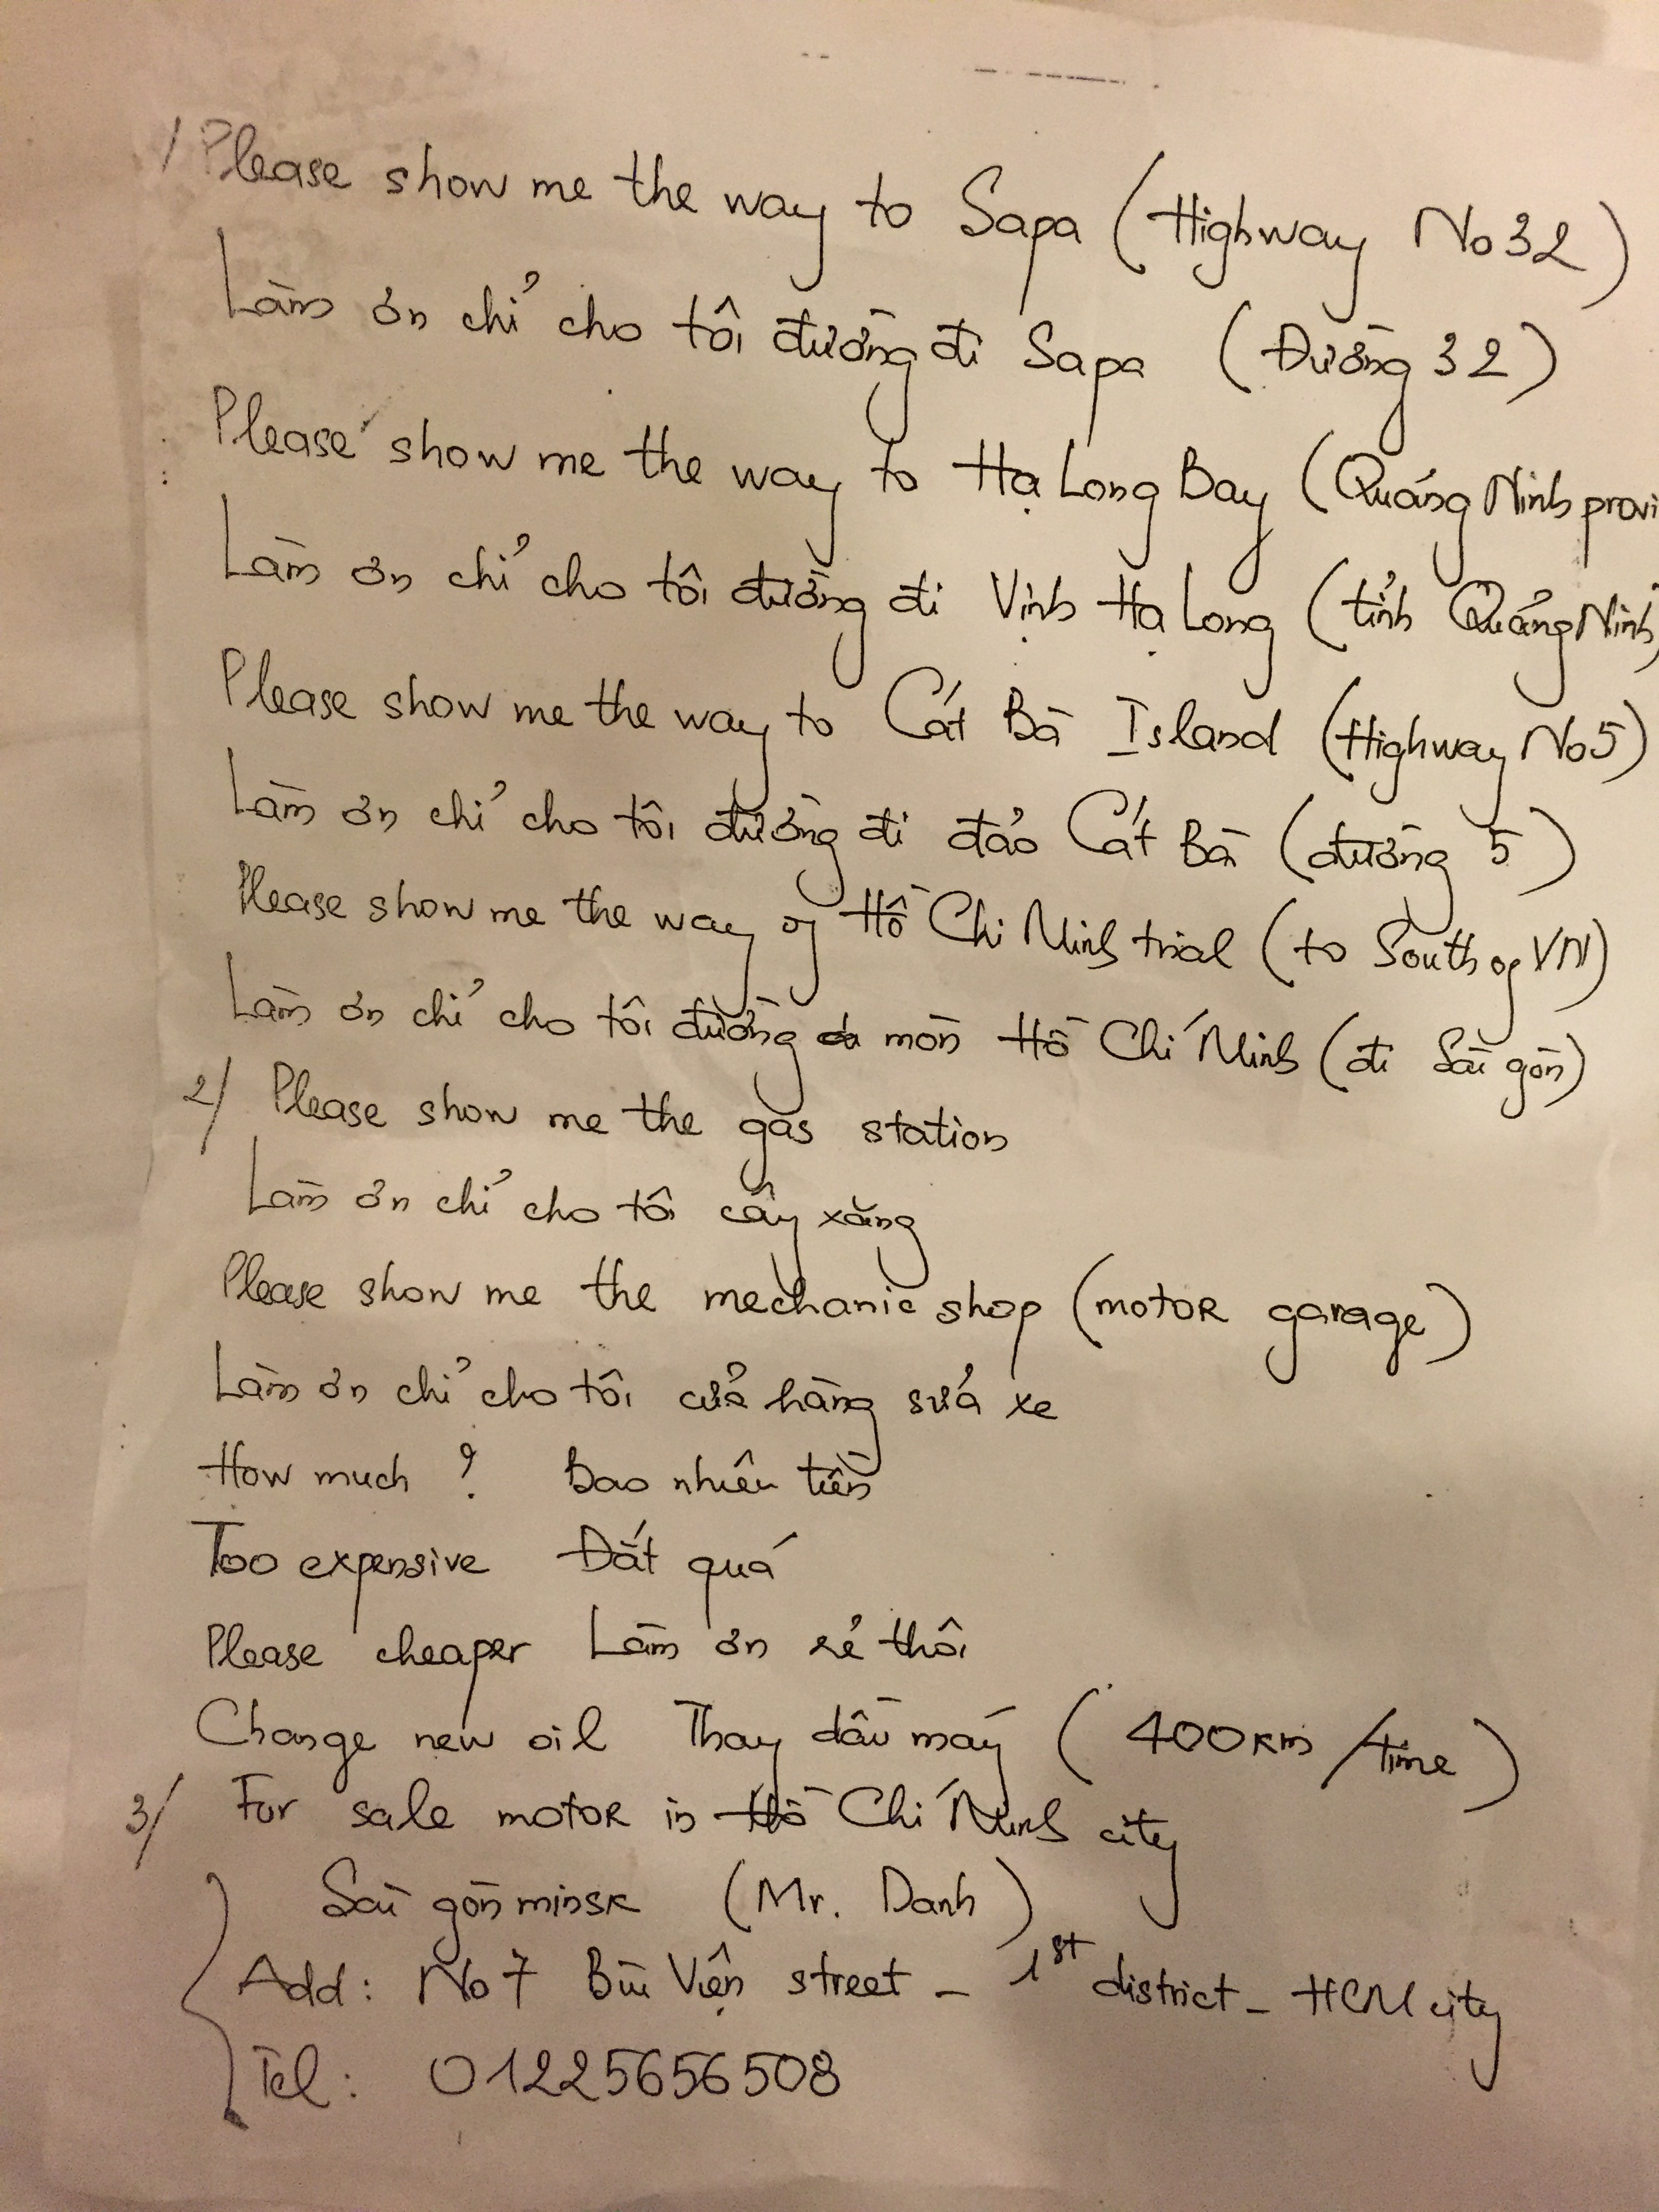 1/ Please show me the way to Sapa (Highway No 32)
Làm ơn chỉ cho tôi đường đi Sapa (Đường 32)
Please show me the way to Hạ Long Bay (Quảng Ninh provi
Làm ơn chỉ cho tôi đường đi Vịnh Hạ Long (tỉnh Quảng Ninh)
Please show me the way to Cát Bà Island (Highway No 5)
Làm ơn chỉ cho tôi đường đi đảo Cát Bà (đường 5)
Please show me the way of Hồ Chi Minh trial (to South of VN)
Làm ơn chỉ cho tôi đường mòn Hồ Chí Minh (đi Sài gòn)
2/ Please show me the gas station
Làm ơn chỉ cho tôi cây xăng
Please show me the mechanic shop (motor garage)
Làm ơn chỉ cho tôi cửa hàng sửa xe
How much ? Bao nhiêu tiền
Too expensive Đắt quá
Please cheaper Làm ơn rẻ thôi
Change new oil Thay dầu máy (400km/time)
3/ For sale motor in Hồ Chí Minh city
Sài gòn minsk (Mr. Danh)
Add: No 7 Bùi Viện street - 1st district - HCM city
Tel: 01225656508